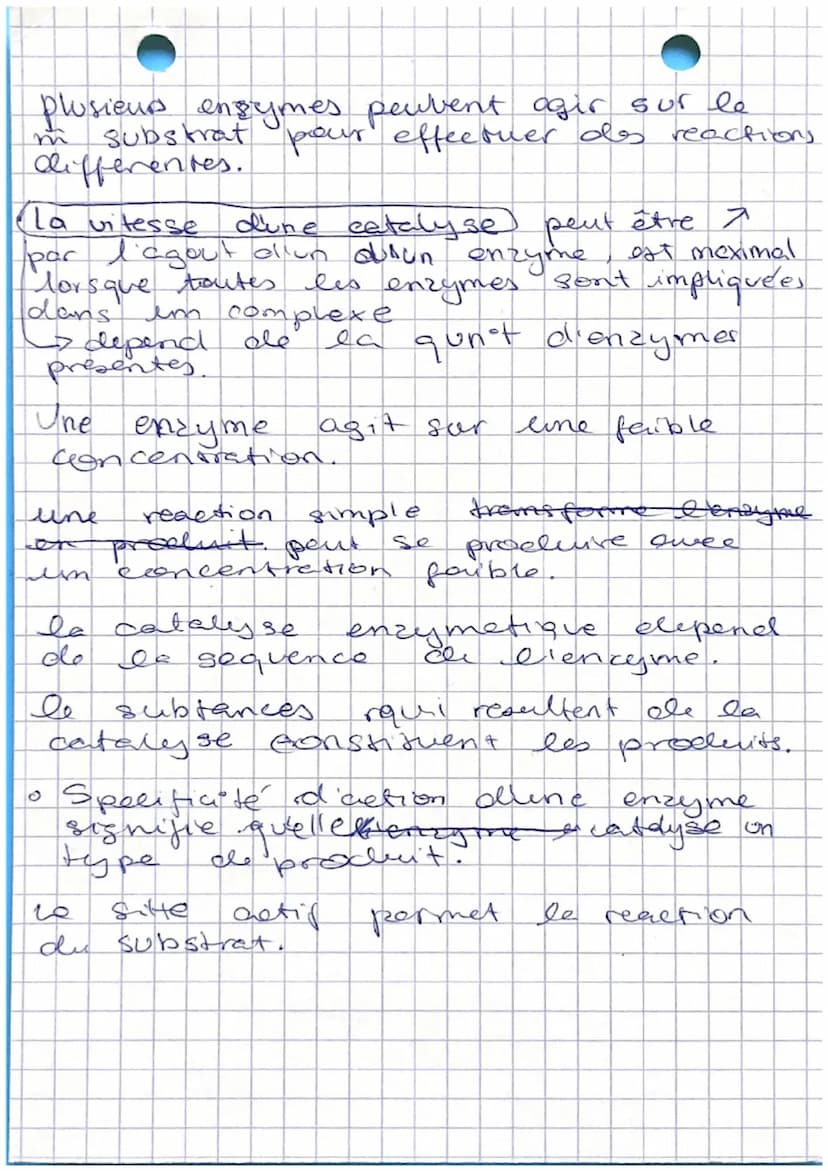 plusieurs enzymes peuvent agir sur le
m̂ substrat pour effectuer des reactions
differentes.
La vitesse d'une catalyse peut être ↗
par l'agout d'un enzyme, est maximal
lorsque toutes les enzymes sont impliquées
dans un complexe
↳ depend de la qun°t d'enzymes
présentes.
Une enzyme agit sur une faible
concentration.
une reaction simple ~~transforme l'enzyme~~
~~en produit.~~ peut se produire avec
um concentration faible.
la catalyse enzymatique depend
de la sequence de l'enzyme.
le subtances qui resultent de la
catalyse constituent les produits.
o Specificité d'action d'une enzyme
signifie qu'elle ~~enzyme~~ catalyse un
type de produit.
Le sitte actif permet la reaction
du substrat.